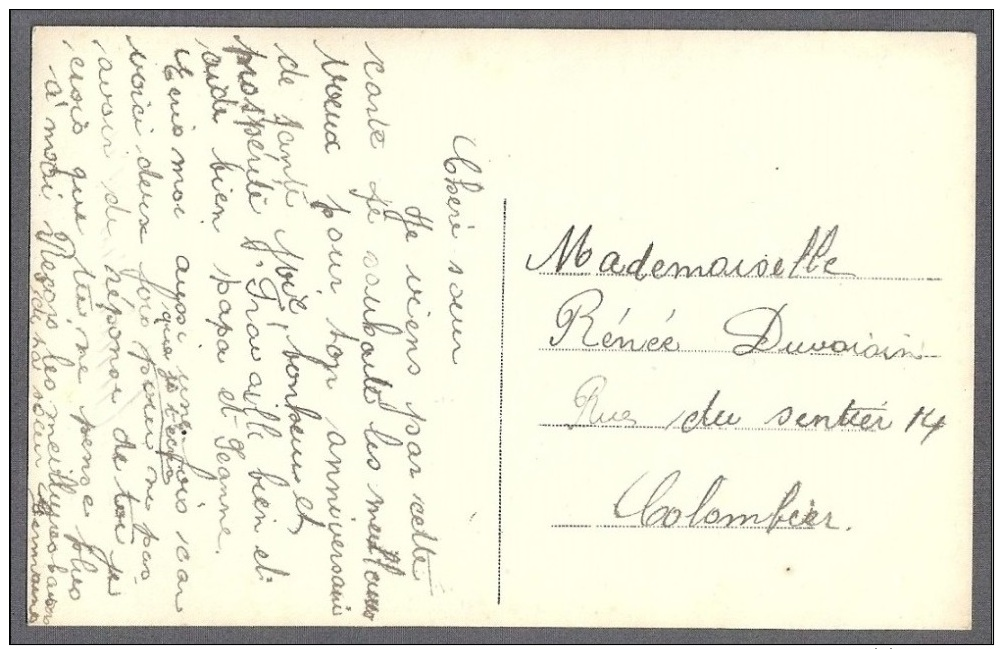 Cheré sœur
Je viens par cette
carte te souhaité les meilleurs
vœux pour ton anniversaire
de santé joie, bonheur et
prospérité. Travaille bien et
aide bien papa et Jeanne.
Ecris moi aussi une fois car
voici deux fois que je t'écris pour ne pas
avoir de réponse de toi je
crois que tu ne pense plus
à moi Reçois les meilleurs baisers
de ta sœur Germaine
Mademoiselle
Rénéé Duvoisin
Rue du sentiér 14
Colombier.